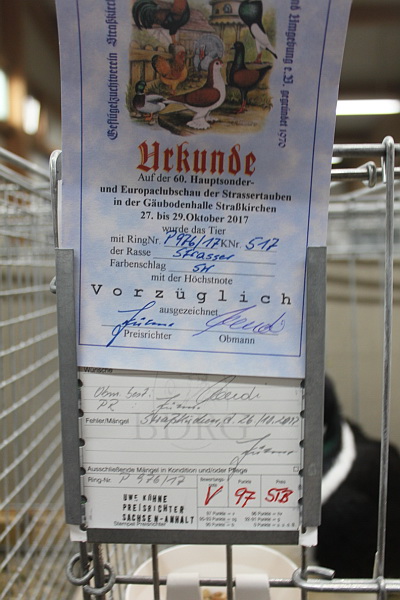 Geflügelzuchtverein Straßkirchen
und Umgebung e.V. gegründet 1970
Urkunde
Auf der 60. Hauptsonder-
und Europaclubschau der Strassertauben
in der Gäubodenhalle Straßkirchen
27. bis 29.Oktober 2017
wurde das Tier
mit RingNr P 976/17 KNr. 517
der Rasse Strasser
Farbenschlag
mit der Höchstnote
Vorzüglich
ausgezeichnet
Preisrichter Obmann
Wünsche
Fehler/Mängel Straßkirchen, d. 26/10.2017
BÜRO
Ausschließende Mängel in Kondition und/oder Pflege
Ring-Nr. P 976/17
UWE KÜHNE
PREISRICHTER
SACHSEN-ANHALT
Stempel Preisrichter
Punkte Preis
V 97 STB
97 Punkte = v